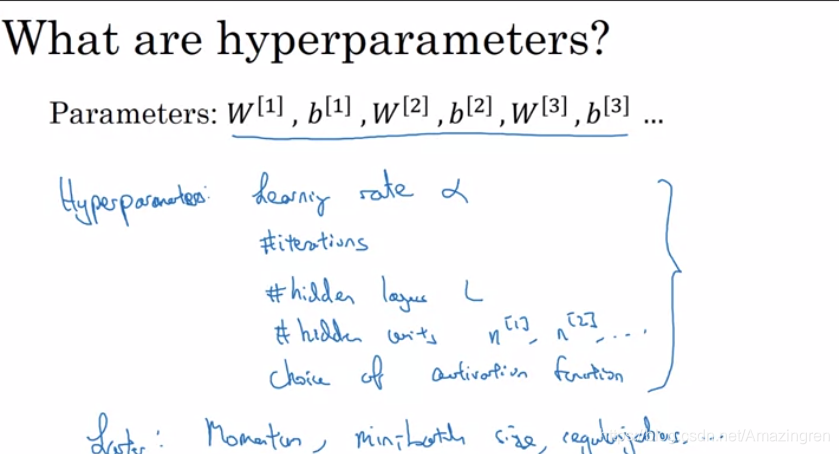 What are hyperparameters?
Parameters: W[1] , b[1] , W[2] , b[2] , W[3] , b[3] ...
Hyperparameters: Learning rate α
#iterations
#hidden layers L
#hidden units n[1], n[2], ....
choice of activation function
Later: Momentum, mini-batch size, regularizations...
csdn.net/Amazingren